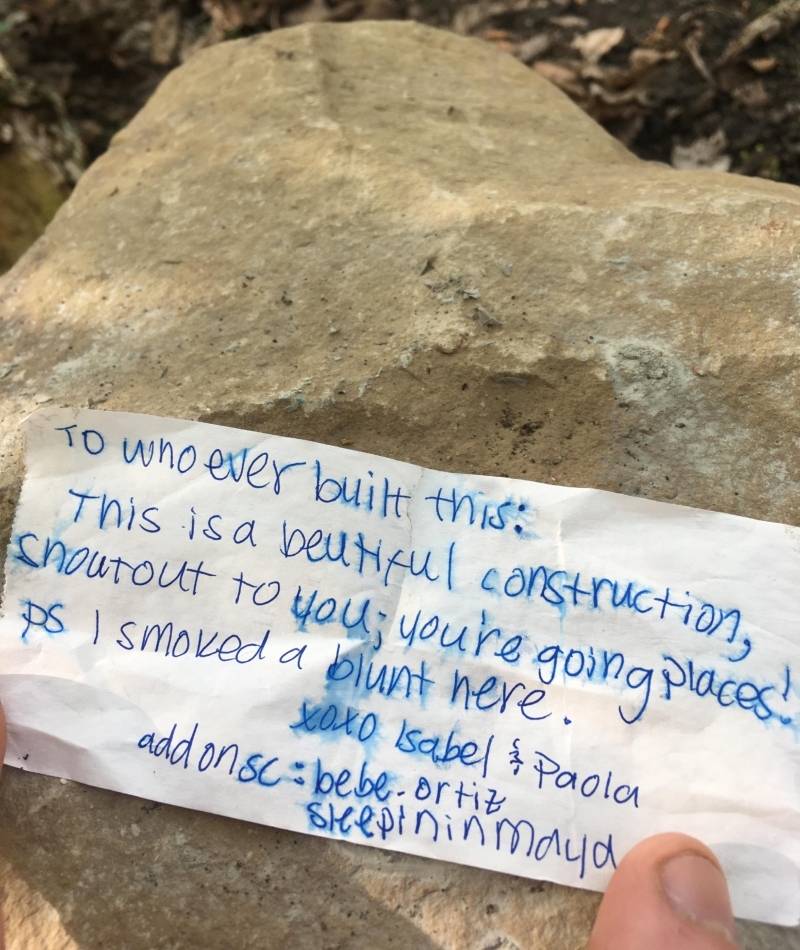 To whoever built this:
This is a beutiful construction,
shoutout to you; you're going places!
ps I smoked a blunt here.
xoxo Isabel & Paola
add on sc: bebe.ortiz
sleepininmaya